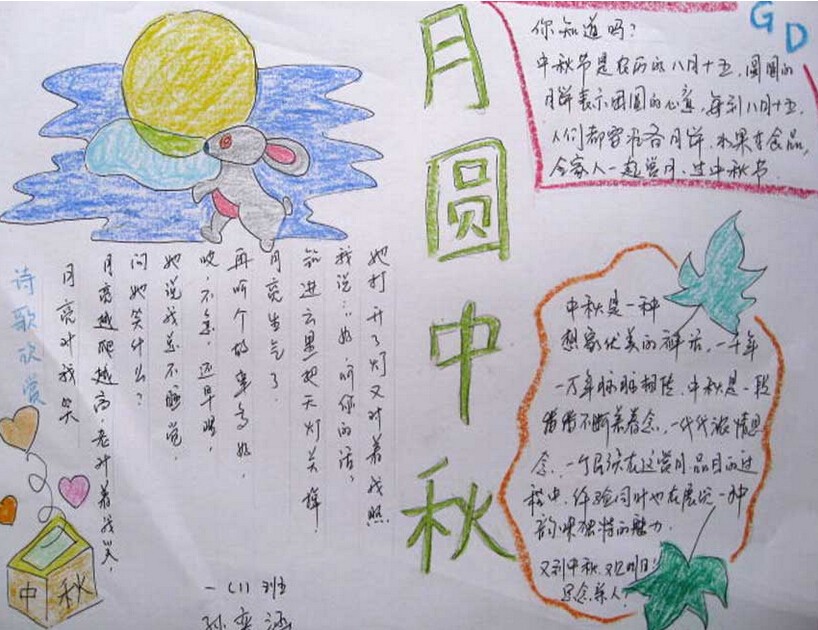 月圆中秋
G D
你知道吗?
中秋节是农历的八月十五,圆圆的
月饼表示团圆的心意,每到八月十五,
人们都要准备月饼.水果等食品,
全家人一起赏月,过中秋节.
诗歌欣赏
月亮对我笑
月亮越爬越高,老对着我笑,
问她笑什么?
她说我总不睡觉,
咦,不急,还早呢,
再听个故事多好,
月亮生气了.
钻进云里把天灯关掉.
我说:"好,听你的话,
她打开了灯又对着我照
中秋是一种
想象优美的神话,一千年
一万年脉脉相传,中秋是一段
不断念,一代代浓情思
念,一个民族在这赏月品月的过
程中,体验同时也在展览一种
韵味独特的魅力.
又到中秋,又
思念亲人!
中秋
一(1)班
孙奕涵